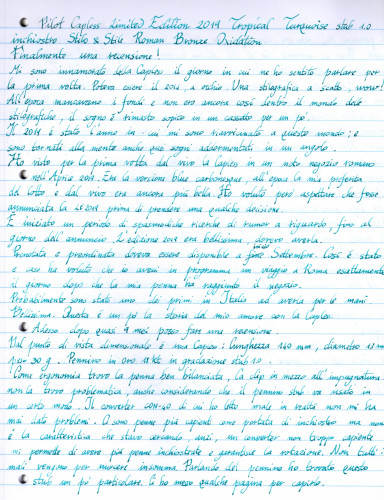 Pilot Capless Limited Edition 2019 Tropical Turquoise stub 1.0
inchiostro Stilo & Stile Roman Bronze Oxidation
Finalmente una recensione!
Mi sono innamorato della Capless il giorno in cui ne ho sentito parlare per
la prima volta. Poteva essere il 2014, a occhio. Una stilografica a scatto, wow!
All'epoca mancavano i fondi e non ero ancora così dentro il mondo delle
stilografiche, il sogno è rimasto sopito in un cassetto per un po'.
Il 2019 è stato l'anno in cui mi sono riavvicinato a questo mondo; e
sono tornati alla mente anche quei sogni addormentati in un angolo.
Ho visto per la prima volta dal vivo la Capless in un noto negozio romano
nell'Aprile 2019. Era la versione blue carbonesque, all'epoca la mia preferita
del lotto e dal vivo era ancora più bella. Ho voluto però aspettare che fosse
annunciata la LE 2019 prima di prendere una qualche decisione.
È iniziato un periodo di spasmodiche ricerche di rumor a riguardo, fino al
giorno dell'annuncio. L'edizione 2019 era bellissima, dovevo averla.
Prenotata e preordinata doveva essere disponibile a fine Settembre. Così è stato
e caso ha voluto che io avessi in programma un viaggio a Roma esattamente
il giorno dopo che la mia penna ha raggiunto il negozio.
Probabilmente sono stato uno dei primi in Italia ad averla per le mani.
Bellissima. Questa è un po' la storia del mio amore con la Capless.
Adesso dopo quasi 4 mesi posso fare una recensione.
Dal punto di vista dimensionale è una Capless: lunghezza 140 mm, diametro 13 mm
per 30 g. Pennino in oro 18 kt in gradazione stub 1.0.
Come ergonomia trovo la penna ben bilanciata, la clip in mezzo all'impugnatura
non la trovo problematica, anche considerando che il pennino stub va usato in
un certo modo. Il converter CON-40 di cui ho letto male in realtà non mi ha
mai dato problemi. Ci sono penne più capienti come portata di inchiostro ma non
è la caratteristica che stavo cercando, anzi, un converter non troppo capiente
mi permette di avere più penne inchiostrate e garantirne la rotazione. Non tutti i
mali vengono per nuocere insomma. Parlando del pennino ho trovato questo
stub un po' particolare. Ci ho messo qualche pagina per capirlo.